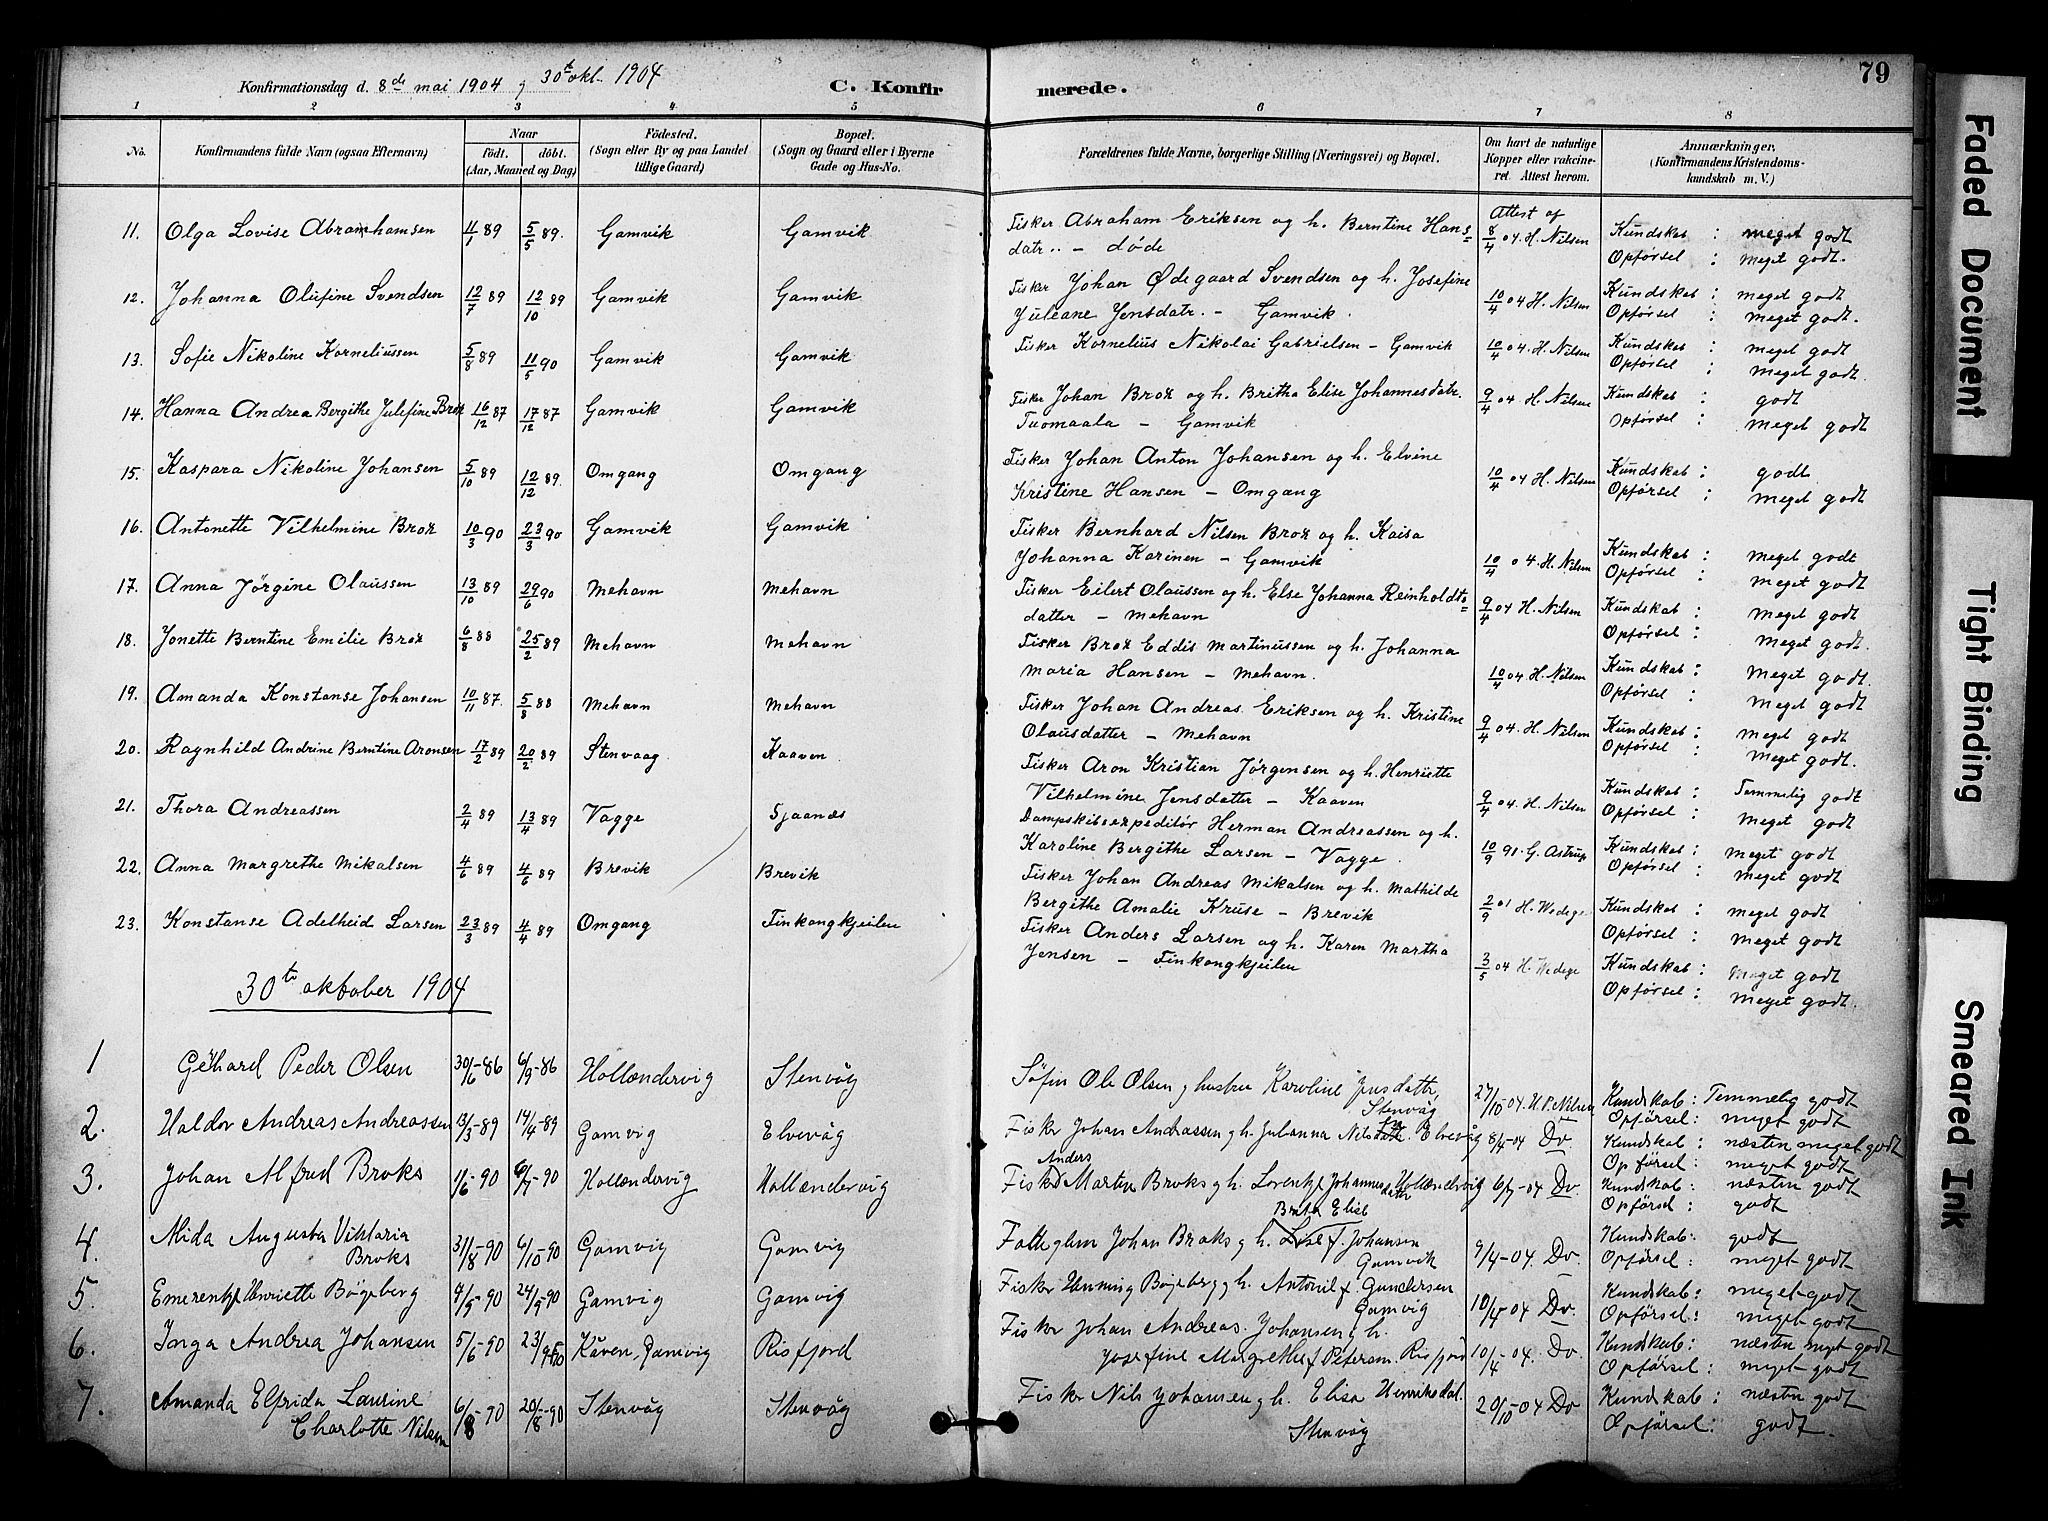 79
Konfirmationsdag d. 8de mai 1904 30te okt. 1904 C. Konfirmerede.
1 2 3 4 5 6 7 8
No. Konfirmandens fulde Navn (ogsaa Efternavn) Naar födt. döbt. (Aar, Maaned og Dag) Födested. (Sogn eller By og paa Landet tillige Gaard) Bopæl. (Sogn og Gaard eller i Byerne Gade og Hus-No. Forældrenes fulde Navne, borgerlige Stilling (Næringsvei) og Bopæl. Om havt de naturlige Kopper eller vakcineret. Attest herom. Anmærkninger. (Konfirmandens Kristendomskundskab m. V.)
11. Olga Lovise Abrahamsen 11/1 89 5/5 89. Gamvik Gamvik Fisker Abraham Eriksen og h. Berntine Hansdatr. - døde Attest af 8/4 04. H. Nilsen Kundskab: meget godt Opførsel: meget godt.
12. Johanna Olufine Svendsen 12/7 89 12/10 89 Gamvik Gamvik Fisker Johan Ødegaard Svendsen og h. Josefine Juleane Jensdatr. - Gamvik. 10/4 04 H. Nilsen Kundskab: meget godt Opførsel: meget godt.
13. Sofie Nikoline Korneliussen 5/8 89 11/5 90 Gamvik Gamvik Fisker Kornelius Nikolai Gabrielsen - Gamvik 10/4 04. H. Nilsen Kundskab: meget godt Opførsel: meget godt.
14. Hanna Andrea Bergithe Julefine Brox 16/12 87 17/12 87 Gamvik Gamvik Fisker Johan Brox og h. Britha Elise Johannesdatr. Tuomaala - Gamvik 9/4 04 H. Nilsen Kundskab: godt Opførsel: meget godt
15. Kaspara Nikoline Johansen 5/10 89 12/12 89. Omgang Omgang Fisker Johan Anton Johansen og h. Elvine Kristine Hansen - Omgang 10/4 04 H. Nilsen Kundskab: godt Opførsel: meget godt
16. Antonette Vilhelmine Brox 10/3 90 23/3 90 Gamvik Gamvik Fisker Bernhard Nilsen Brox og h. Kaisa Johanna Karinen - Gamvik 10/4 04. H. Nilsen Kundskab: meget godt Opførsel: meget godt
17. Anna Jørgine Olaussen 13/10 89 29/6 90 Mehavn Mehavn Fisker Eilert Olaussen og h. Else Johanna Reinholdtsdatter - Mehavn 9/4 04 H. Nilsen Kundskab: meget godt Opførsel: meget godt.
18. Jonette Berntine Emilie Brox 6/8 88 25/2 89 Mehavn Mehavn Fisker Brox Eddis Martinussen og h. Johanna Maria Hansen - Mehavn. 10/4 04 H. Nilsen Kundskab: Meget godt. Opførsel: Meget godt
19. Amanda Konstanse Johansen 10/11 87. 5/8 88 Mehavn Mehavn Fisker Johan Andreas Eriksen og h. Kristine Olausdatter - Mehavn 9/4 04. H. Nilsen Kundskab: meget godt Opførsel: Meget godt.
20. Ragnhild Andrine Berntine Aronsen 17/2 89 20/2 89 Stenvaag Kaaven Fisker Aron Kristian Jørgensen og h. Henriette Vilhelmine Jensdatter - Kaaven 9/4 04. H. Nilsen Kundskab: Temmelig godt Opførsel: Meget godt
21. Thora Andreassen 2/4 89 13/4 89 Vagge Sjaanæs Dampskibsexpeditør Herman Andreassen og h. Karoline Bergithe Larsen - Vagge. 10/9 91. G. Astrup Kundskab: Meget godt Opførsel: Meget godt
22. Anna Margrethe Mikalsen 4/6 89 4/6 89 Brevik Brevik Fisker Johan Andreas Mikalsen og h. Mathilde Bergithe Amalie Kruse - Brevik 2/9 01 H. Wedege Kundskab: meget godt Opførsel: Meget godt
23. Konstanse Adelheid Larsen 23/3 89 4/4 89 Omgang Finkongkjeilen Fisker Anders Larsen og h. Karen Martha Jensen - Finkongkjeilen 3/5 04 H. Wedege Kundskab: Meget godt Opførsel: Meget godt.
30te oktober 1904
1 Gerhard Peder Olsen 30/6-86 6/9-86 Hollændervig Stenvåg Søfin Ole Olsen g hustru Karoline Jensdatter, Stenvåg 27/10-04. H. P. Nilsen Kundskab: Temmelig godt Opførsel: meget godt
2. Haldor Andreas Andreassen 13/3-89 14/4-89 Gamvig Elvevåg Fisker Johan Andreassen g h. Julianna Nilsdatter. Elvevåg 8/4-04 Do. Kundskab: næsten meget godt Opførsel: meget godt
3. Johan Alfred Broks 1/6-90 6/7-90 Hollændervig Hollændervig Fisker Anders Martin Broks g h. Lorentze Johannesdatter Hollændervig 6/7-04 Do. Kundskab: næsten godt Opførsel: godt
4. Alida Augusta Viktoria Broks 31/8-90 6/10-90 Gamvig Gamvig Johan Broks g h. Brita Elise f. Johansen Gamvik 9/4-04. Do Kundskab: godt Opførsel: meget godt
5. Emerentze Henriette Bøgeberg 9/9-90 24/9-90 Gamvig Gamvig Fisker Henning Bøgeberg g h. Antonie f. Gundersen Gamvig 10/4-04 Do Kundskab: meget godt Opførsel: meget godt
6. Inga Andrea Johansen 5/6-90 23/9-90 Kåven, Gamvig Risfjord Fisker Johan Andreas Johansen g h. Josefine Margrethe f. Petersen Risfjord 10/4-04. Do. Kundskab: næsten meget godt Opførsel: meget godt
7. Amanda Elfrida Laurine Charlotte Nilsen 6/8-90 20/8-90 Stenvåg Stenvåg Fisker Nils Johansen g h. Elisa Henriksdat. Stenvåg 20/10-04 Do Kundskab: næsten godt Opførsel: godt.
Faded Document
Tight Binding
Smeared Ink